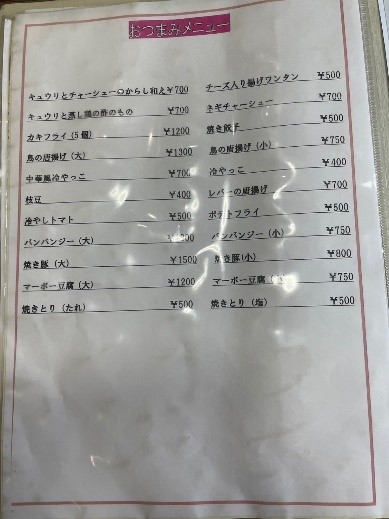 おつまみメニュー
キュウリとチャーシューのからし和え ¥700
キュウリと蒸し鶏の酢のもの ¥700
カキフライ (5個) ¥1200
鳥の唐揚げ (大) ¥1300
中華風冷やっこ ¥700
枝豆 ¥400
冷やしトマト ¥500
バンバンジー (大)
焼き豚 (大) ¥1500
マーボー豆腐 (大) ¥1200
焼きとり (たれ) ¥500
チーズ入り揚げワンタン ¥500
ネギチャーシュー ¥700
焼き餃子 ¥500
鳥の唐揚げ (小) ¥750
冷やっこ ¥400
レバーの唐揚げ ¥700
ポテトフライ ¥500
バンバンジー (小) ¥750
焼き豚(小) ¥800
マーボー豆腐 ¥750
焼きとり (塩) ¥500